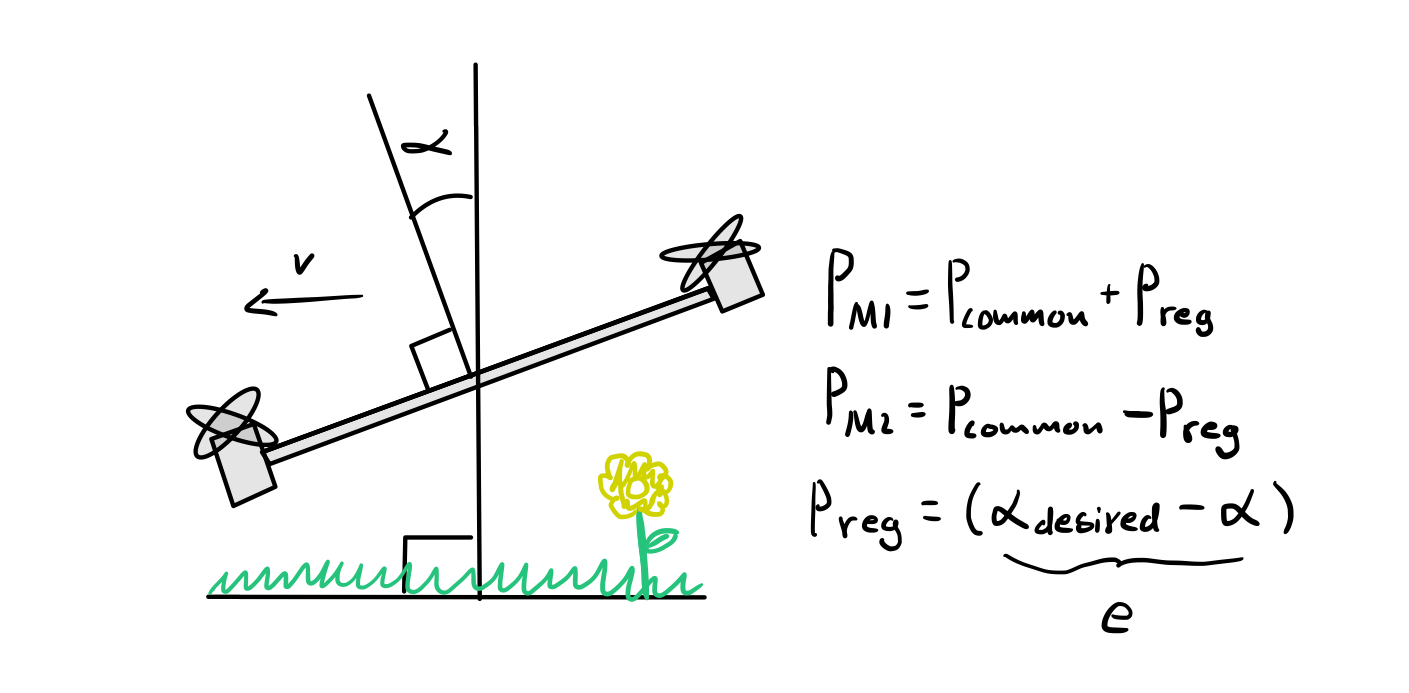 α
v
P_M1 = P_common + P_reg
P_M2 = P_common - P_reg
P_reg = (α_desired - α)
e